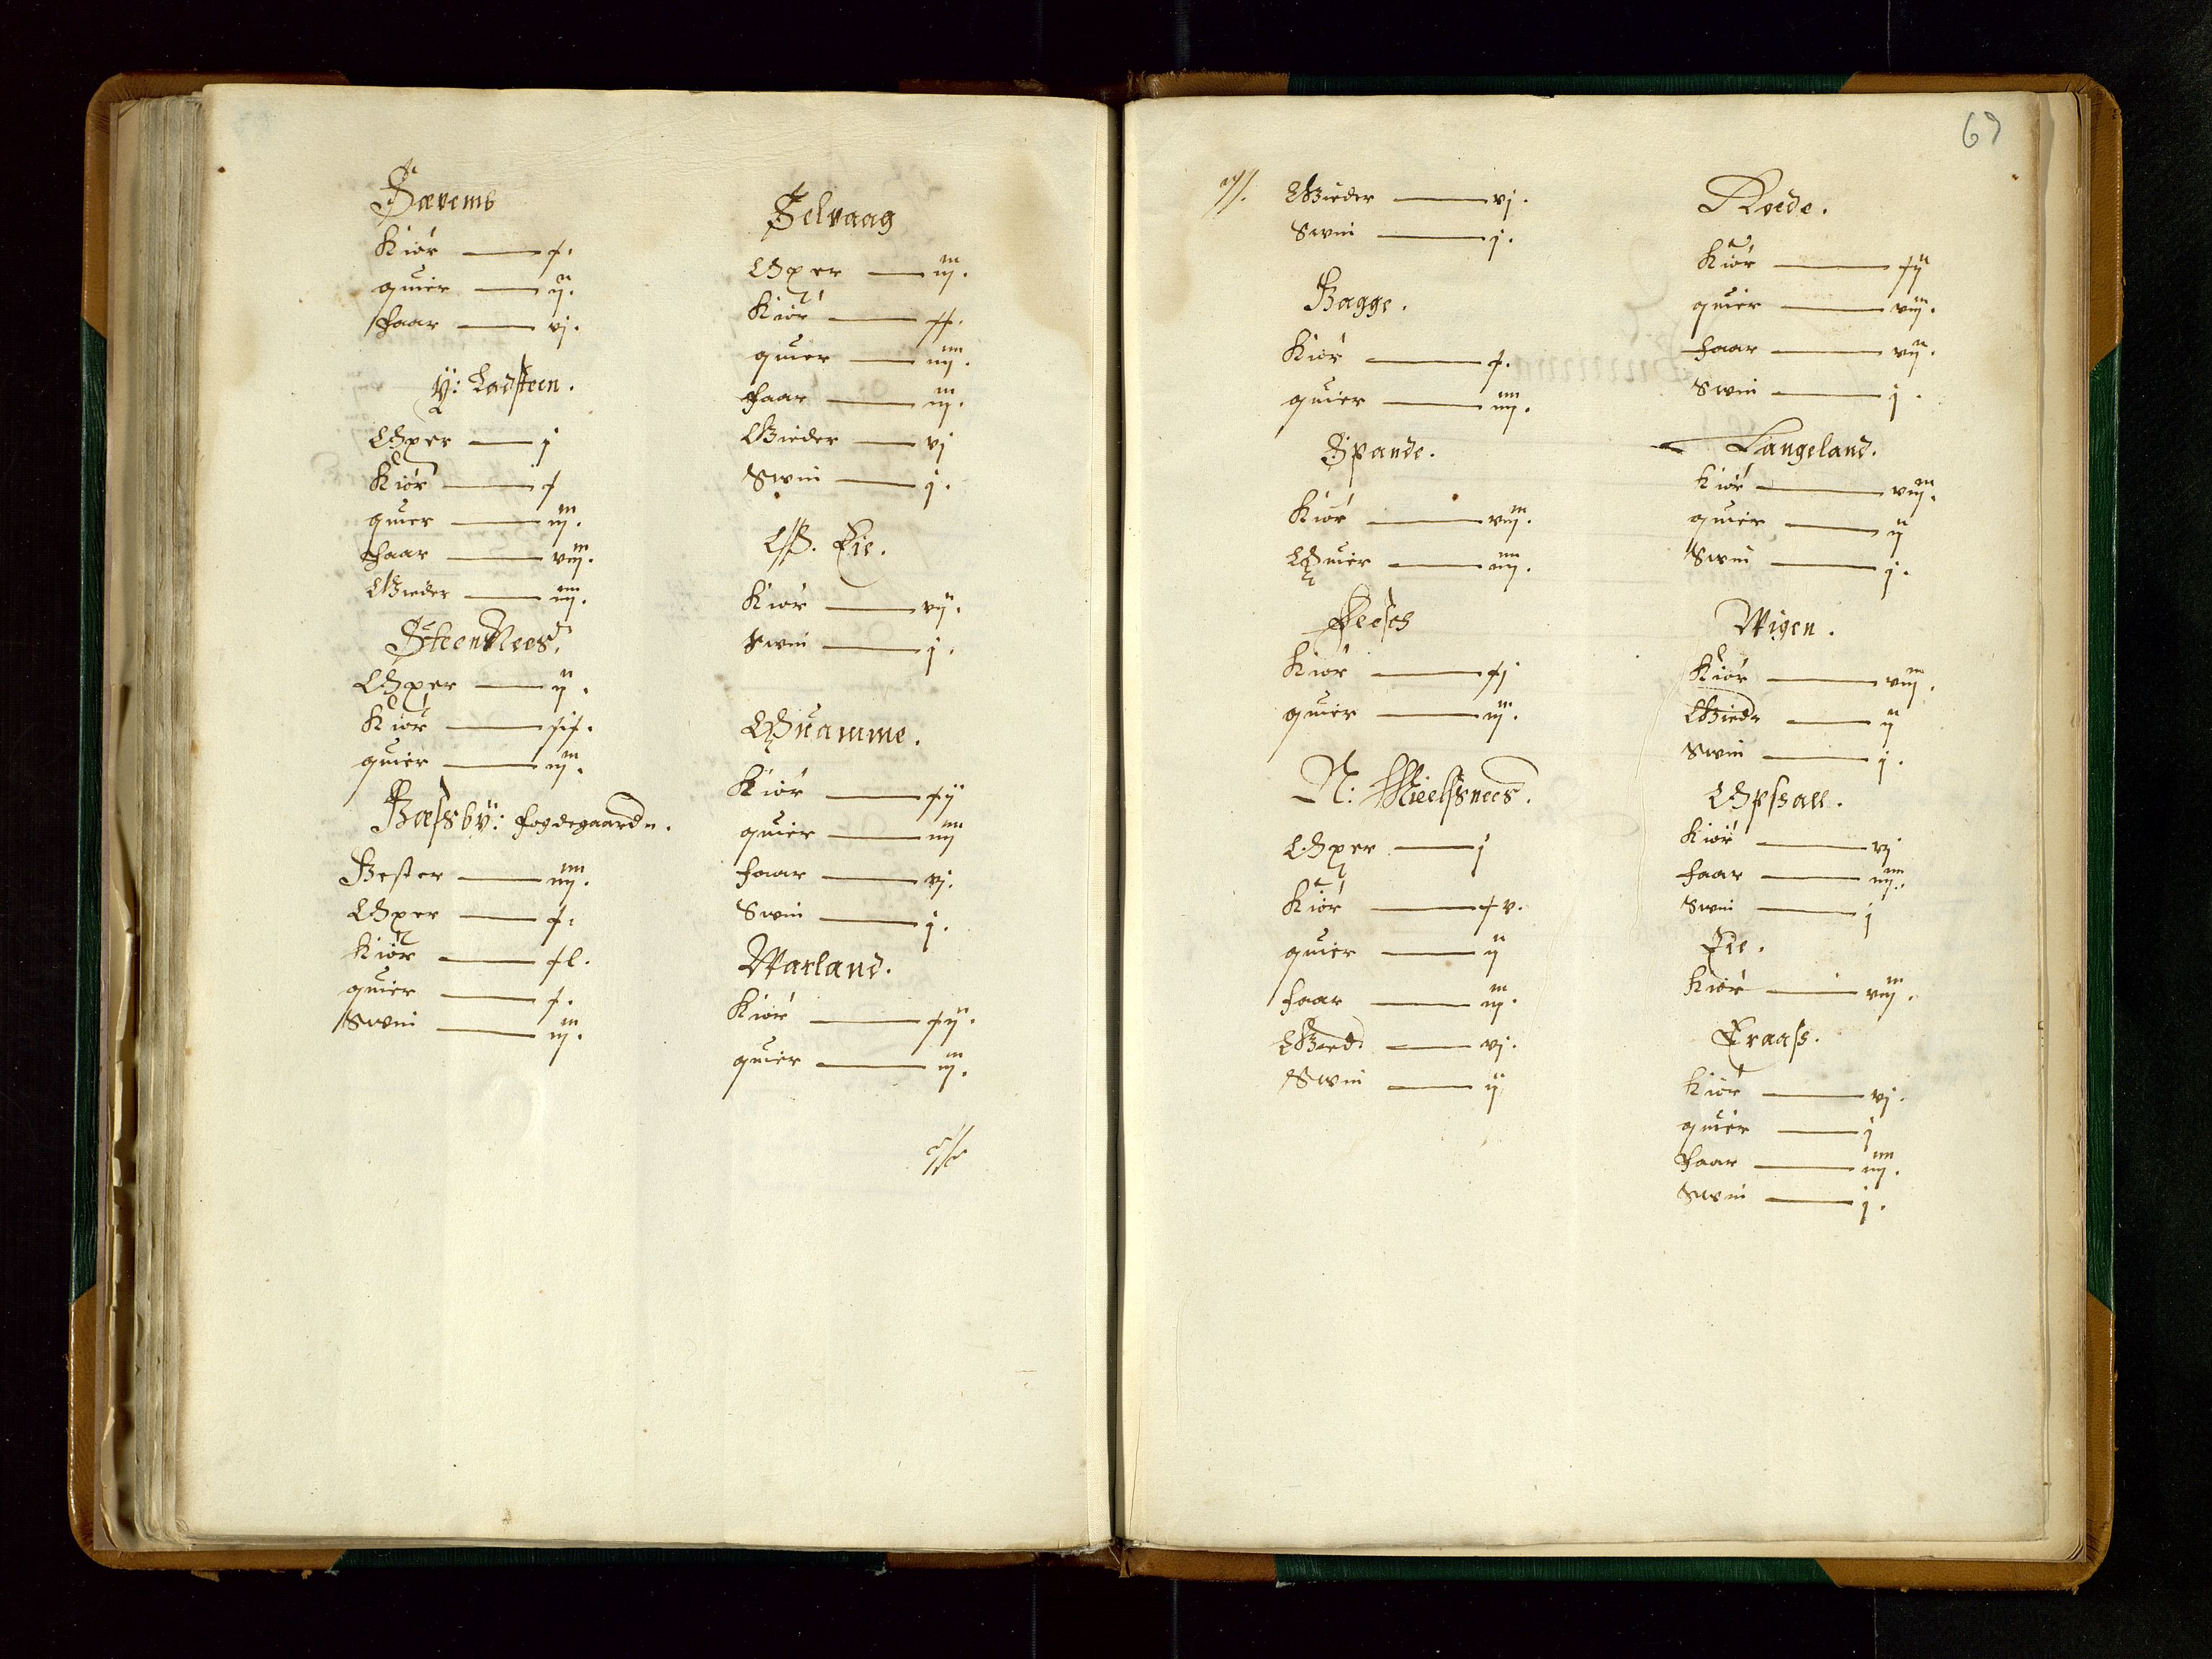 Sævemb
Kiør — x.
quier — ij.
faar — vj.
Y: Ladsteen.
Oxer — j
Kiør — x
quier — iij.
faar — viij.
Gieder — iiij.
SteenNees.
Oxer — ij.
Kiør — xix.
quier — iij.
Bæssby: fogdegaardn.
Bester — iiij.
Oxer — x.
Kiør — xl.
quier — x.
Swin — iij.
Selvaag
Oxer — iij.
Kiør — xx.
quier — iiij.
faar — iij.
Gieder — vj
Swin — j.
Eie.
Kiør — vij.
Swin — j.
Quamme.
Kiør — xij
quier — iiij
faar — vj.
Swin — j.
Warland.
Kiør — xij.
quier — iij.
67
Gieder — vj.
Swin — j.
Bagge.
Kiør — x.
quier — iiij.
Spande.
Kiør — viij.
Quier — iiij.
Kiør — xj
quier — iij.
N: Nielssnees.
Oxer — j
Kiør — xv.
quier — ij
faar — iij.
Gied. — vj.
Swin — ij
Roede.
Kiør — xij
quier — viij.
faar — vij.
Swin — j.
Langeland.
Kiør — viij.
quier — ij
Swin — j.
Wigen.
Kiør — viij.
Giedr — ij
Swin — j.
Opsall.
Kiør — vj
faar — iiij.
Swin — j
Eie.
Kiør — viij.
Eraass.
Kiør — vj.
quier — j
faar — iiij.
Swin — j.